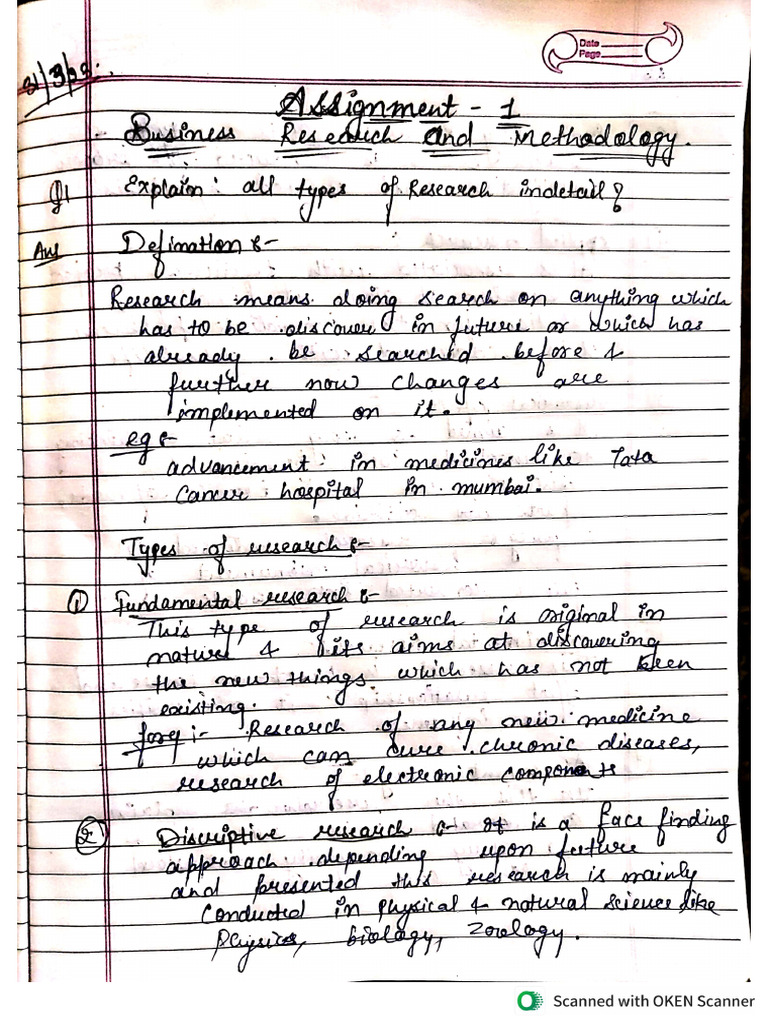 Date
Page
31/3/22.
Assignment - 1
Business Research and Methodology.
Q1 Explain: all types of Research indetail?
Ans Defination :-
Research means doing search on anything which
has to be discover in future or which has
already be searched before &
further now changes are
implemented on it.
eg :-
advancement in medicines like Tata
Cancer hospital in mumbai.
Types of research :-
① Fundamental research :-
This type of research is original in
nature & its aims at discovering
the new things which has not been
existing.
for eg :- Research of any new medicine
which can cure chronic diseases,
research of electronic components
② Discriptive research :- It is a face finding
approach depending upon future
and presented this research is mainly
conducted in physical & natural science like
Physics, biology, zoology.
Scanned with OKEN Scanner